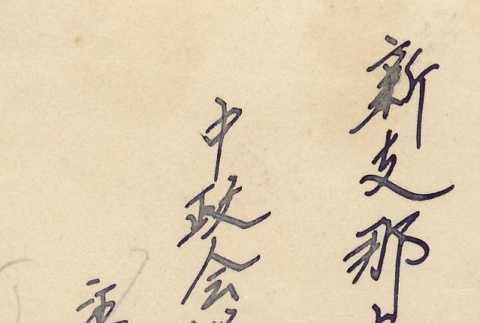 新支那
中政会